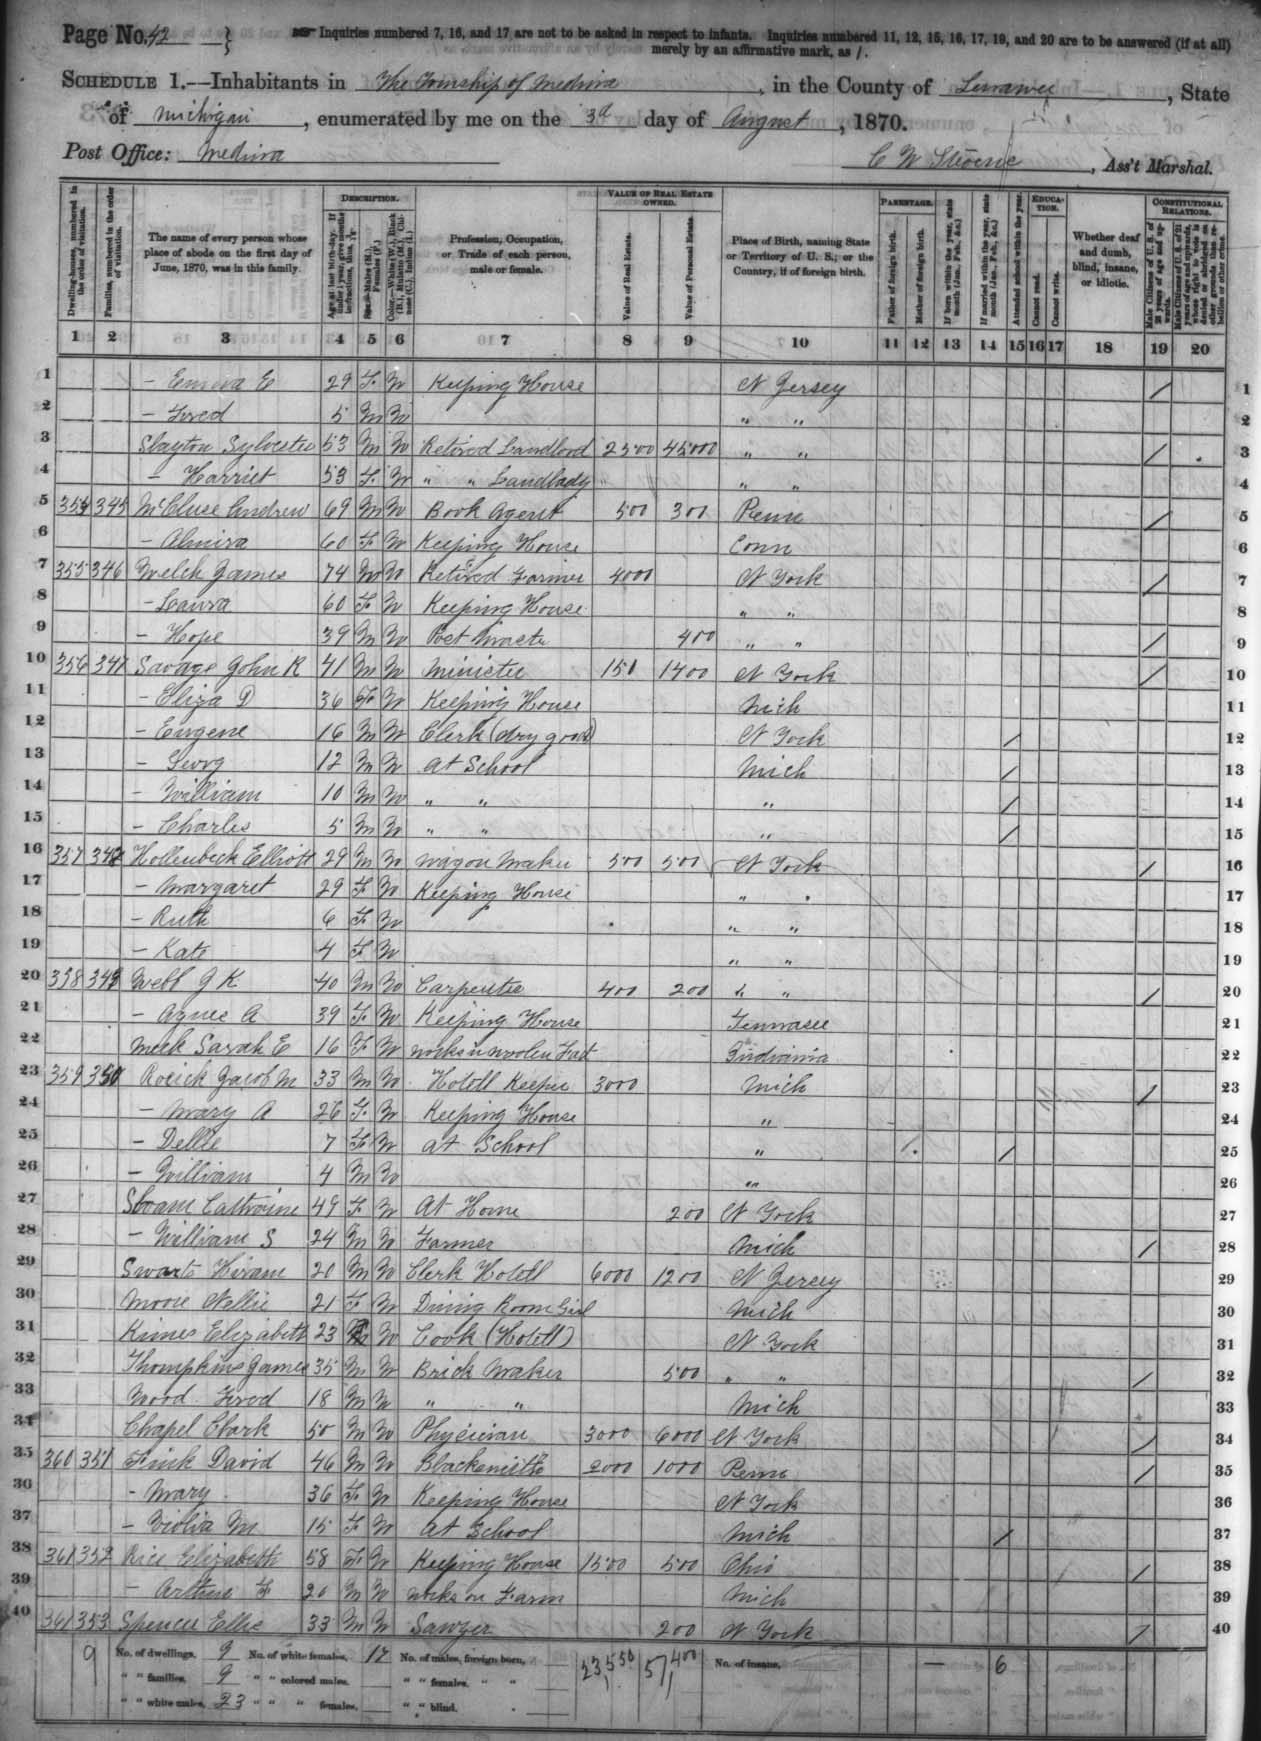 Page No. 42
Inquiries numbered 7, 16, and 17 are not to be asked in respect to infants. Inquiries numbered 11, 12, 15, 16, 17, 19, and 20 are to be answered (if at all)
merely by an affirmative mark, as /.
SCHEDULE 1.—Inhabitants in The Township of Medina, in the County of Lenawee, State
of Michigan, enumerated by me on the 3d day of August, 1870.
Post Office: Medina
C W, Ass't Marshal.
Dwelling-houses, numbered in the order of visitation.
Families, numbered in the order of visitation.
The name of every person whose place of abode on the first day of June, 1870, was in this family.
DESCRIPTION.
Age at last birth-day. If under 1 year, give months in fractions, thus, 3/12.
Sex.—Males (M.), Females (F.)
Color.—White (W.), Black (B.), Mulatto (M.), Chinese (C.), Indian (I.)
Profession, Occupation, or Trade of each person, male or female.
VALUE OF REAL ESTATE OWNED.
Value of Real Estate.
Value of Personal Estate.
Place of Birth, naming State or Territory of U. S.; or the Country, if of foreign birth.
PARENTAGE.
Father of foreign birth.
Mother of foreign birth.
If born within the year, state month (Jan., Feb., &c.)
If married within the year, state month (Jan., Feb., &c.)
Attended school within the year.
EDUCATION.
Cannot read.
Cannot write.
Whether deaf and dumb, blind, insane, or idiotic.
CONSTITUTIONAL RELATIONS.
Male Citizens of U. S. of 21 years of age and upwards.
Male Citizens of U. S. of 21 years of age and upwards, whose right to vote is denied or abridged on other grounds than rebellion or other crime.
1 2 3 4 5 6 7 8 9 10 11 12 13 14 15 16 17 18 19 20
1 — Emma E 29 F W Keeping House N Jersey / 1
2 — Fred 5 M W " " 2
3 Slayton Sylvester 53 M W Retired Landlord 2500 45000 " " / 3
4 — Harriet 53 F W " " Landlady " " 4
5 354 345 McCluse Andrew 69 M W Book Agent 500 300 Penn / 5
6 — Almira 60 F W Keeping House Conn 6
7 355 346 Welch James 74 M W Retired Farmer 4000 N York / 7
8 — Laura 60 F W Keeping House " " 8
9 — Hope 39 M W Post Master 400 " " / 9
10 356 347 Savage John R 41 M W Minister 150 1400 N York / 10
11 — Eliza D 36 F W Keeping House Mich 11
12 — Eugene 16 M W Clerk (dry goods) N York / 12
13 — Georg 12 M W At School Mich / 13
14 — William 10 M W " " " / 14
15 — Charles 5 M W " " " / 15
16 357 348 Hollenbeck Elliott 29 M W Wagon Maker 500 500 N York / 16
17 — Margaret 29 F W Keeping House " " 17
18 — Ruth 6 F W " " 18
19 — Kate 4 F W " " 19
20 358 349 Webb J K 40 M W Carpenter 400 200 " " / 20
21 — Agnes A 39 F W Keeping House Tennasee 21
22 Meek Sarah E 16 F W Works in Woolen Fact Indiania 22
23 359 350 Jacob M 33 M W Hotell Keeper 3000 Mich / 23
24 — Mary A 26 F W Keeping House " 24
25 — Dellie 7 F W At School " / 25
26 — William 4 M W " 26
27 Sloam Cathraine 49 F W At Home 200 N York 27
28 — William S 24 M W Farmer Mich / 28
29 Swarts Hiram 20 M W Clerk Hotell 6000 1200 N Jersey 29
30 Moore Nellie 21 F W Dining Room Girl Mich 30
31 Kimes Elizabeth 23 F W Cook (Hotell) N York 31
32 Thompkins James 35 M W Brick Maker 500 " " / 32
33 Wood Fred 18 M W " " Mich 33
34 Chapel Clark 50 M W Physician 3000 6000 N York / 34
35 360 351 Fink David 46 M W Blacksmith 2000 1000 Penn / 35
36 - Mary 36 F W Keeping House N York 36
37 — Violia M 15 F W At School Mich / 37
38 361 352 Rice Elizabeth 58 F W Keeping House 1500 500 Ohio / 38
39 — Arthur F 20 M W Works on Farm Mich 39
40 361 353 Spencer Ellis 33 M W Sawyer 200 N York / 40
9 No. of dwellings, 9 No. of white females, 17 No. of males, foreign born, 23,550 57,400 No. of insane, — 6
" " families, 9 " " colored males, " " females, " "
" " white males, 23 " " " females, " " blind.